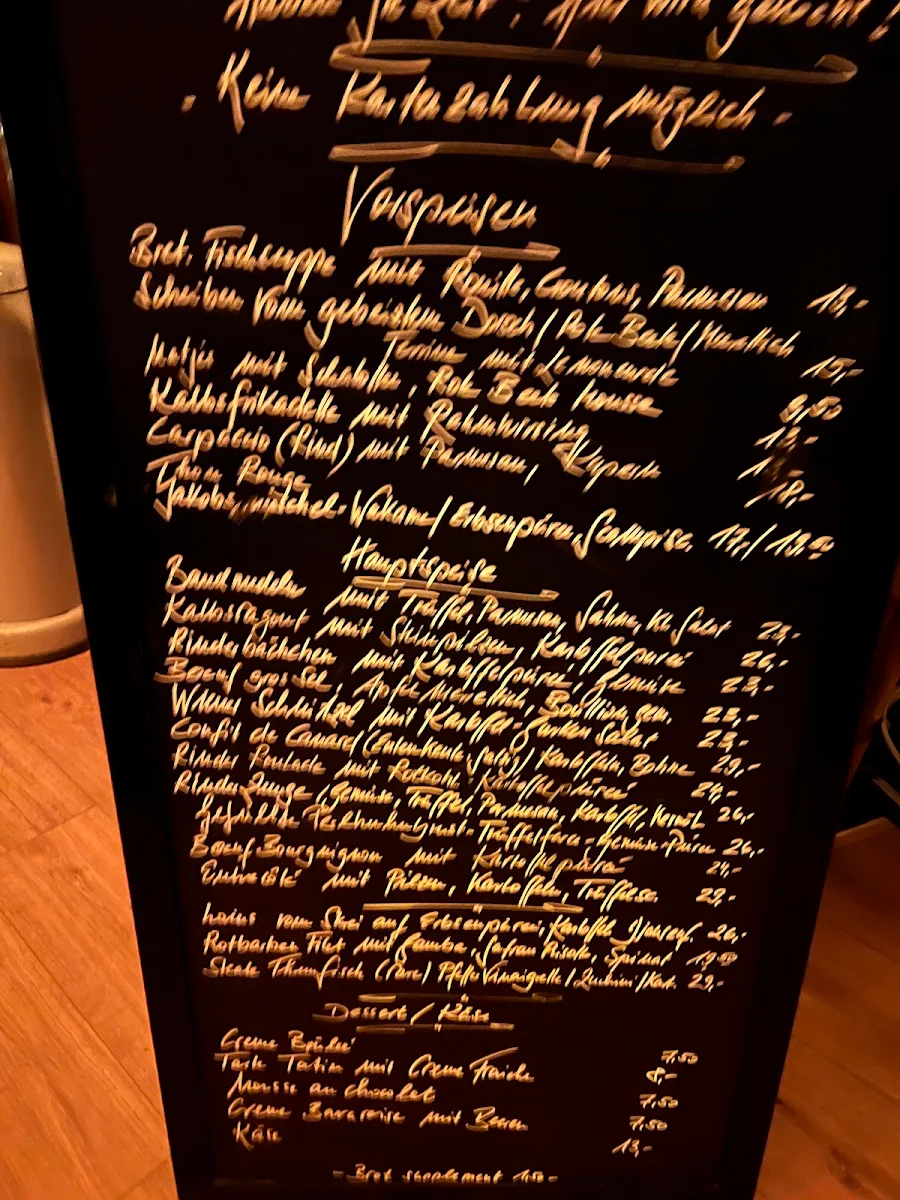 wird gekocht!
Keine Kartenzahlung möglich -
Vorspeisen
Bret. Fischsuppe mit Rouille, Croutons, Parmesan 18,-
Scheiben vom gebeiztem Dorsch / Rote Beete / Meerettich 15,-
Terrine mit Remoulade 9,50
Matjes mit Schalotten, Rote Beete Mousse 13,-
Kalbsfrikadelle mit Rahmwirsing
Carpaccio (Rind) mit Parmesan, Kapern 18,-
Thon Rouge
Jakobsmuschel - Wakame / Erbsenpüree,
Hauptspeise
Bandnudeln mit Trüffel, Parmesan, Sahne, Kl. Salat 23,-
Kalbsragout mit Steinpilzen, Kartoffelpüree 26,-
Rinderbäckchen mit Kartoffelpüree, Gemüse 23,-
Boeuf gros sel, Apfelmeerettich, Bouillongem. 23,-
Wiener Schnitzel mit Kartoffel-Gurken Salat 23,-
Confit de Canard (Entenkeule) Kartoffeln, Bohne 29,-
Rinder Roulade mit Rotkohl, Kartoffelpüree 24,-
Rinder Zunge, Gemüse, Trüffel, Parmesan, Kartoffel, 26,-
Gefüllte Perlhuhnbrust - Trüffelfarce - Gemüse-Püree 26,-
Boeuf Bourguignon mit Kartoffelpüree 24,-
Entrecôte mit Pilzen, Kartoffeln, 29,-
vom Skrei auf Erbsenpüree, Kartoffel, 26,-
Rotbarben Filet mit Gamba, Safran Risotto, Spinat 19,50
Steak Thunfisch (rare) Pfeffer Vinaigrette / Zuchini / Kart. 29,-
Dessert / Käse
Creme Brulee 7,50
Tarte Tatin mit Creme Fraiche 8,-
Mousse au chocolat 7,50
Creme Bavaroise mit Beeren 7,50
Käse 13,-
- Brot supplement 1,50 -